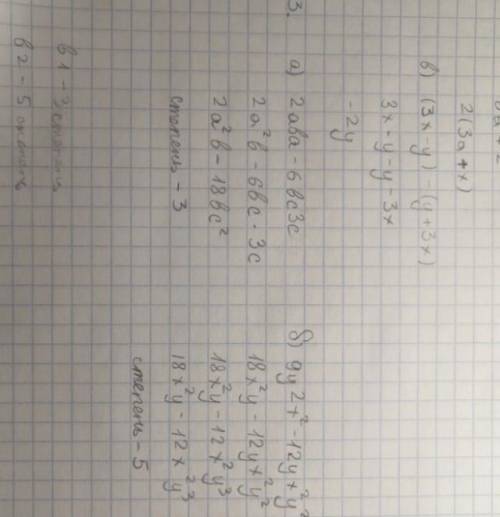 2(3a+x)
в) (3x-y)-(y+3x)
3x-y-y-3x
-2y
3.
а) 2aвa-6вc3c
2a²в-6вc·3c
2a²в-18вc²
степень-3
б) 9y2x²-12yx²y²
18x²y-12yx²y²
18x²y-12x²y³
18x²y-12x²y³
степень-5
в 1-3
в 2-5